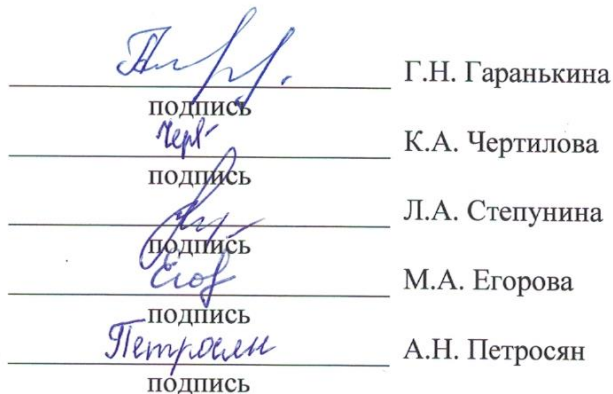 Г.Н. Гаранькина
подпись
Черт
К.А. Чертилова
подпись
Л.А. Степунина
подпись
Егор
М.А. Егорова
подпись
Петросян
А.Н. Петросян
подпись